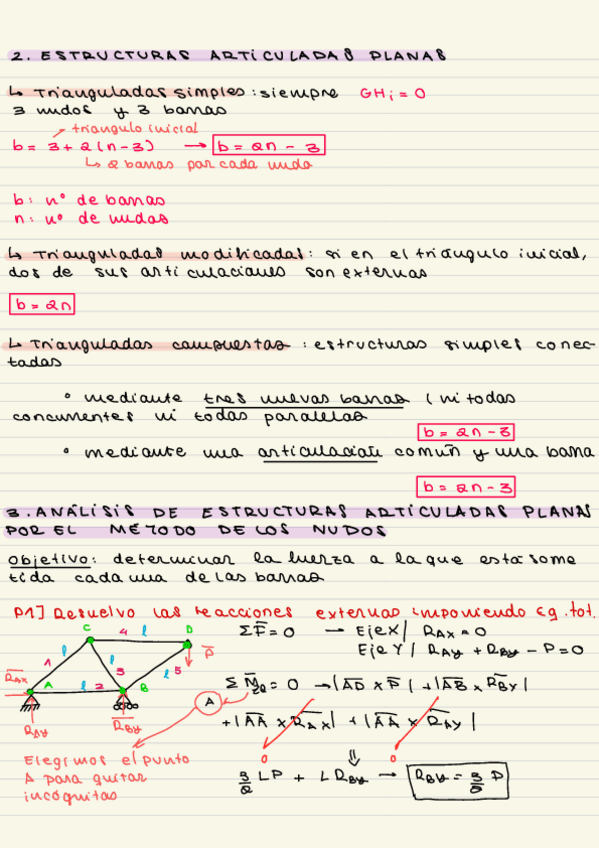 2. ESTRUCTURAS ARTICULADAS PLANAS
↳ Trianguladas simples: siempre GHi = 0
3 nudos y 3 barras
triangulo inicial
b = 3 + 2(n-3) → b = 2n - 3
↳ 2 barras por cada nudo
b: nº de barras
n: nº de nudos
↳ Trianguladas modificadas: si en el triángulo inicial,
dos de sus articulaciones son externas
b = 2n
↳ Trianguladas compuestas: estructuras simples conec-
tadas
• mediante tres nuevas barras (ni todas
concurrentes ni todas paralelas
b = 2n - 3
• mediante una articulación común y una barra
b = 2n - 3
3. ANÁLISIS DE ESTRUCTURAS ARTICULADAS PLANAS
POR EL MÉTODO DE LOS NUDOS
Objetivo: determinar la fuerza a la que está some
tida cada una de las barras
P1] Resuelvo las reacciones externas imponiendo Eq. tot.
C 4 l D
1 l l 3 l 5 P
RAX A l 2 B
RAY RBY
ΣF = 0 → Eje X | RAX = 0
Eje Y | RAY + RBY - P = 0
A
= 0 → |AD x P| + |AB x RBY|
+ |AA x RAX| + |AA x RAY|
0 0
Elegimos el punto
A para quitar
incógnitas
⇓
3/2 LP + LRBY → RBY = P